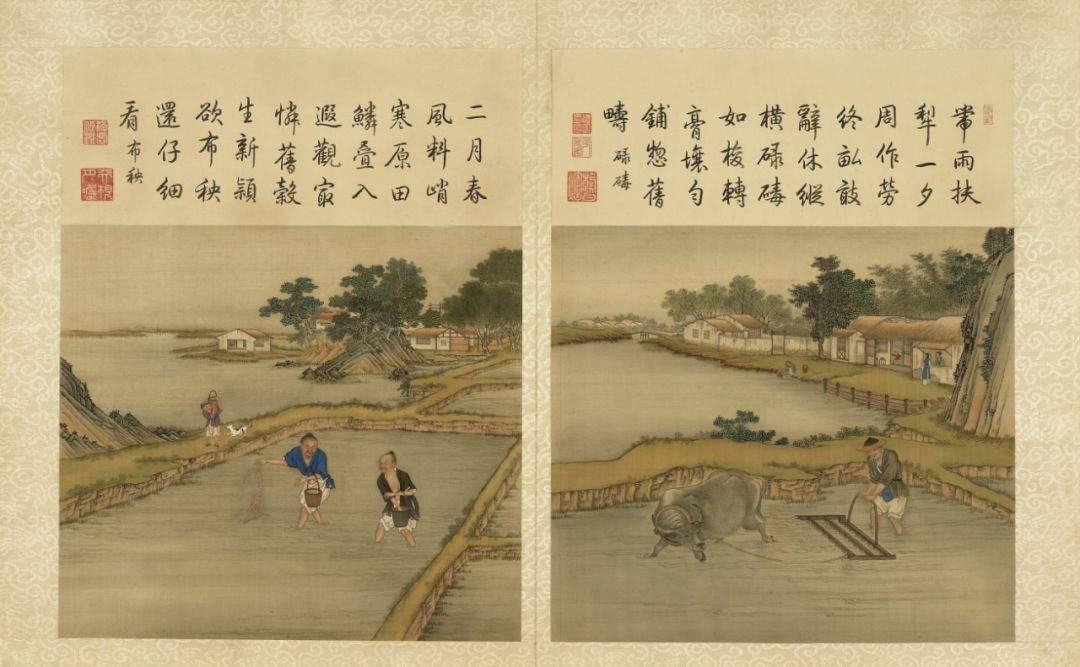 帶雨扶
犁一夕
周作勞
終畝敢
辭休縱
橫碌碡
如梭轉
膏壤勻
鋪惣舊
疇 碌碡
二月春
風料峭
寒原田
鱗疊入
遐觀㝡
憐舊穀
生新穎
欲布秧
還仔細
看 布秧